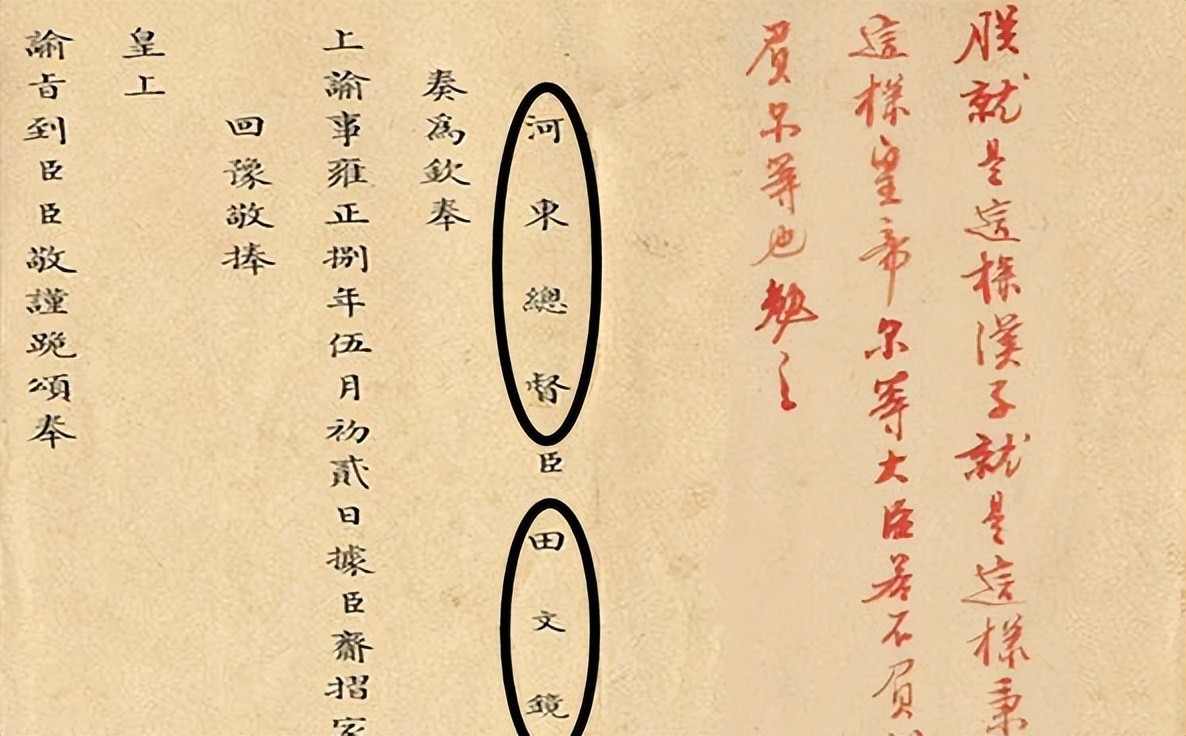 朕就是這樣漢子就是這樣秉
這樣皇帝尔等大臣若不負
負尔等也勉之
河東總督臣田文鏡
奏為欽奉
上諭事雍正捌年伍月初貳日據臣齎摺家
回豫敬捧
皇上
諭旨到臣臣敬謹跪頌奉